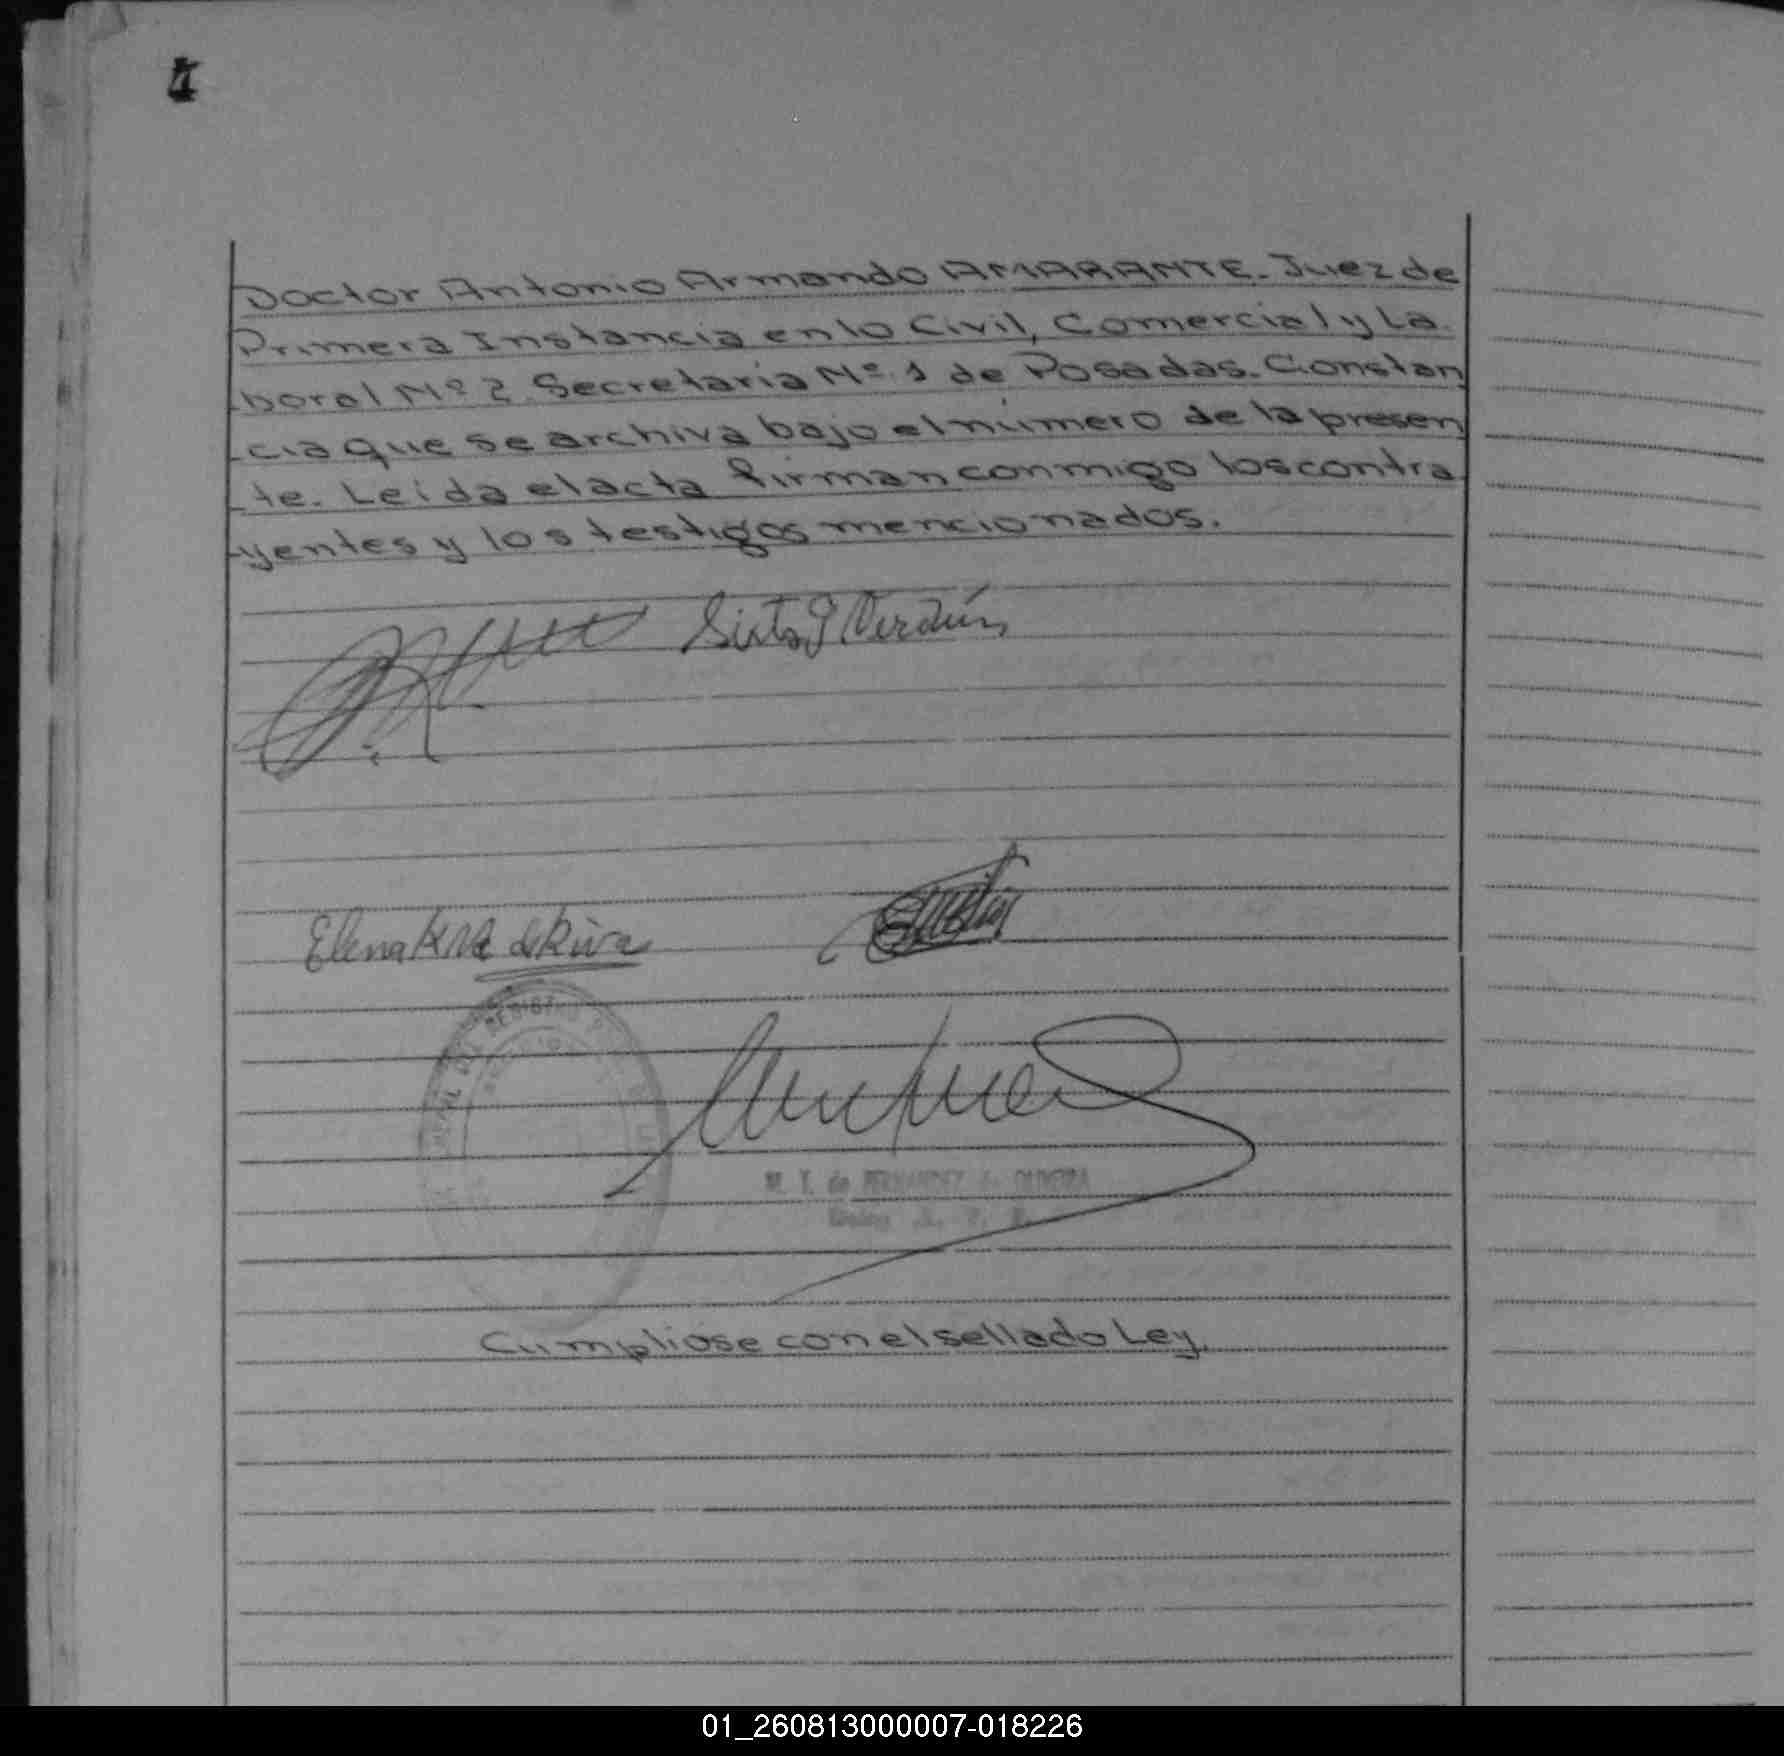 Doctor Antonio Armando AMARANTE. Juez de
Primera Instancia en lo Civil, Comercial y La
boral Nº 2. Secretaria Nº 1 de Posadas. Constan
cia que se archiva bajo el número de la presen
te. Leida el acta firman conmigo los contra
yentes y los testigos mencionados.
Sixto J Verdún
Elena K de Riva
M. T. de FERNANDEZ de OLIVEIRA
Cumpliose con el sellado Ley.
01_260813000007-018226